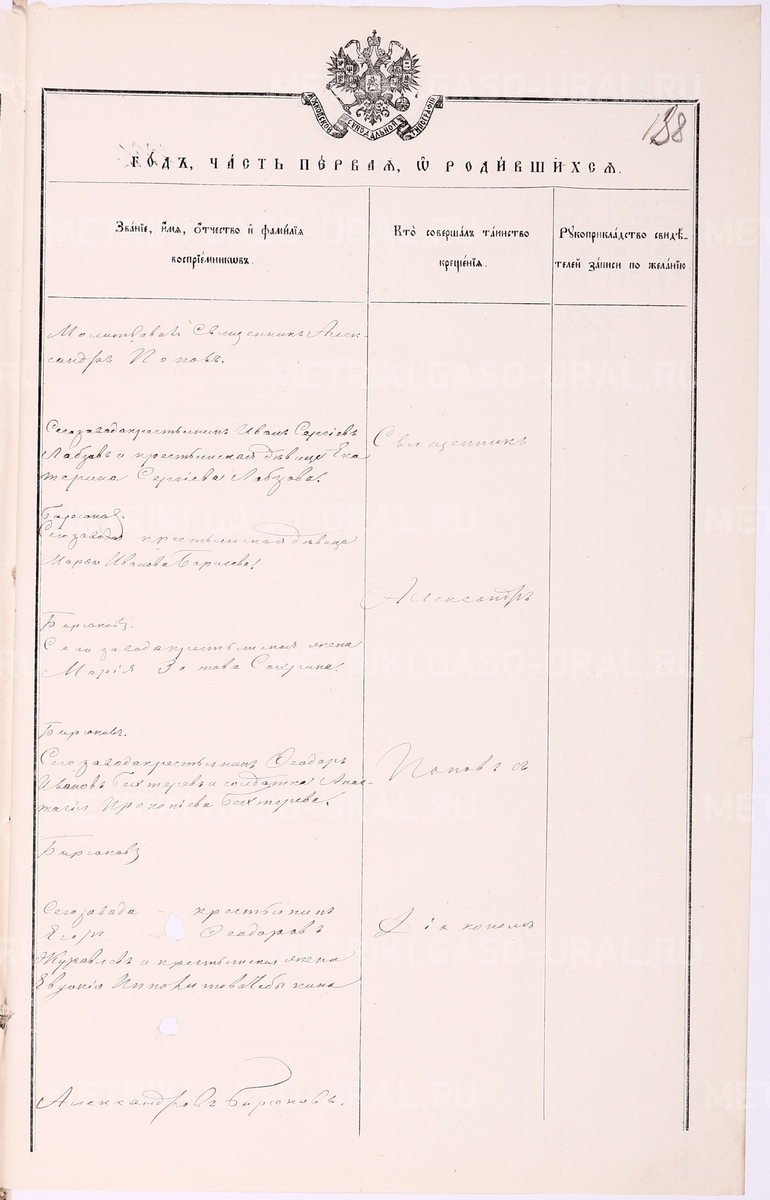 МОСКОВСКОЙ СѴНОДАЛЬНОЙ ТИПОГРАФІИ
138
ГОДЪ, ЧАСТЬ ПЕРВАЯ, Ѡ РОДИВШИХСЯ.
Званіе, имя, отчество и фамилія
воспріемниковъ.
Кто совершалъ таинство
крещенія.
Рукоприкладство свидѣ-
телей записи по желанію
Молитвовалъ Священникъ Алек-
сандръ Поповъ.
Сего завода крестьянинъ Иванъ Сергіевъ
Лабзовъ и крестьянская дѣвица Ека
терина Сергіева Лабзова.
Священникъ
Бирюковъ.
Сего завода крестьянская дѣвица
Марѳа Иванова Борисова.
Александръ
Бирюковъ.
Сего завода крестьянская жена
Марія Зотова
Бирюковъ.
Сего завода крестьянинъ Ѳеодоръ
Ивановъ Бехтеревъ и солдатка Анас-
тасія Прокопіева Бехтерева.
Поповъ съ
Бирюковъ
Сего завода крестьянинъ
Егоръ Ѳеодоровъ
Журавлевъ и крестьянская жена
Евдокія Ипполитова Чебыкина
Діакономъ
Александровъ Бирюковъ.
METRIKI.GASO-URAL.RU